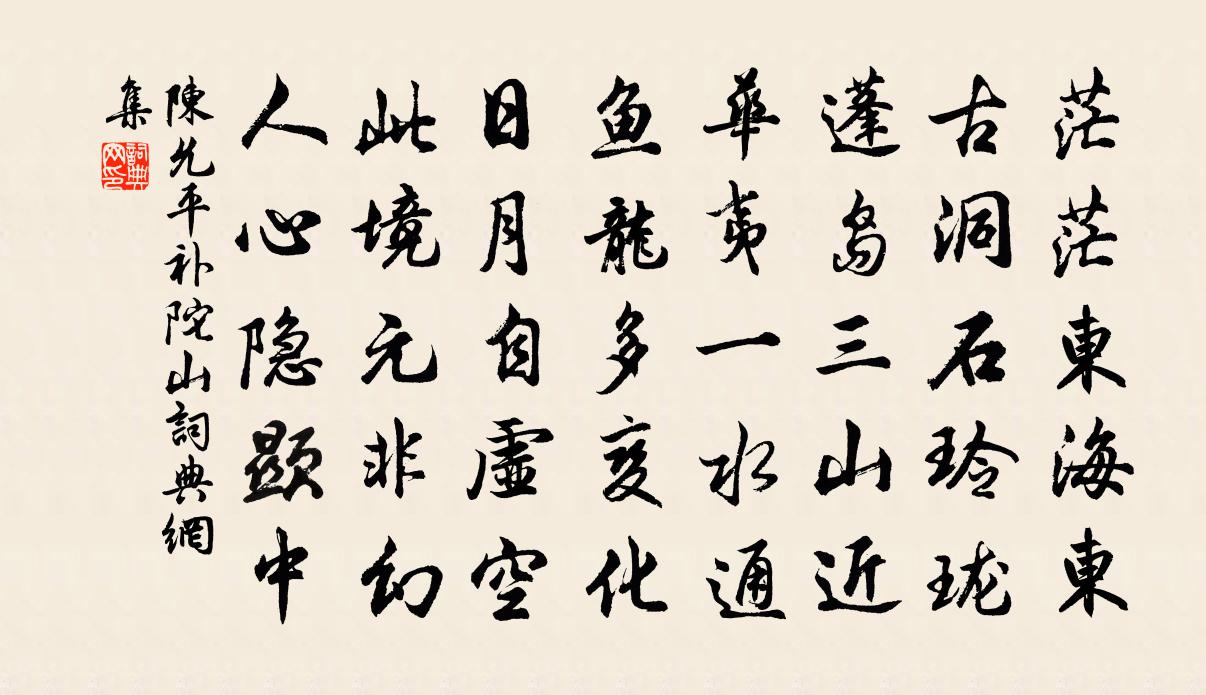 茫茫東海東
古洞石玲珑
蓬岛三山近
華夷一水通
鱼龍多变化
日月自虚空
此境元非幻
人心隐顕中
陳允平补陀山詞典網
集
詞典
网印